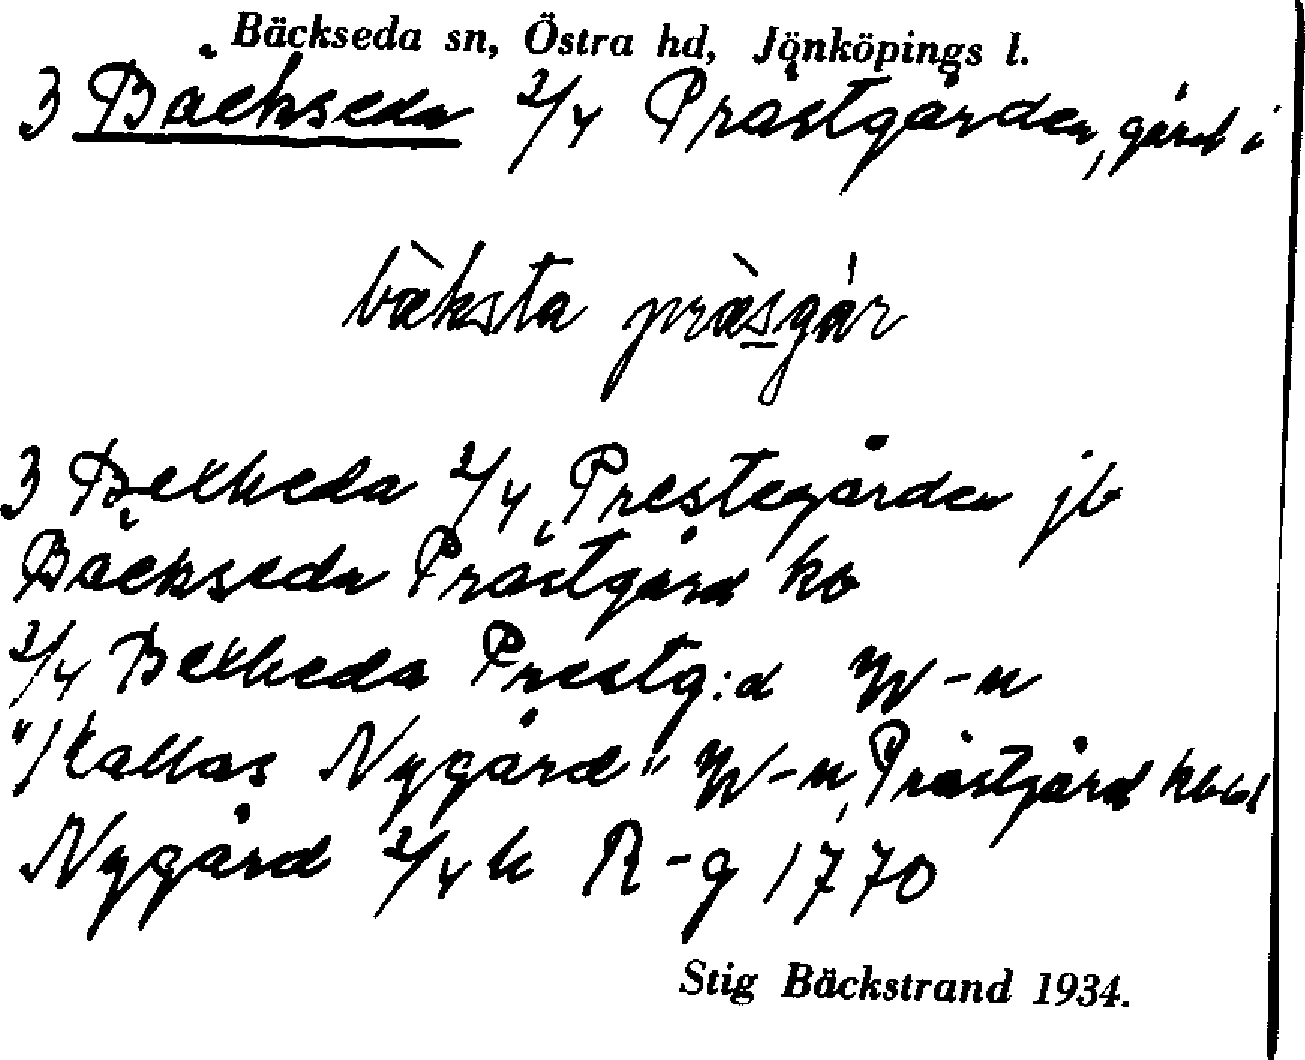 Bäckseda sn, Östra hd, Jönköpings l.
3 Bäckseda 2/4 Prästgården, gård i
bæ̀ksta præ̀sgár
3 Bexheda 2/4 Prestegården jb
Bäckseda Prästgård kb
2/4 Bexheda Prestg:d W-n
"/kallas Nygård" W-n, Prästgård kbbd
Nygård 2/4 k R-g 1770
Stig Bäckstrand 1934.